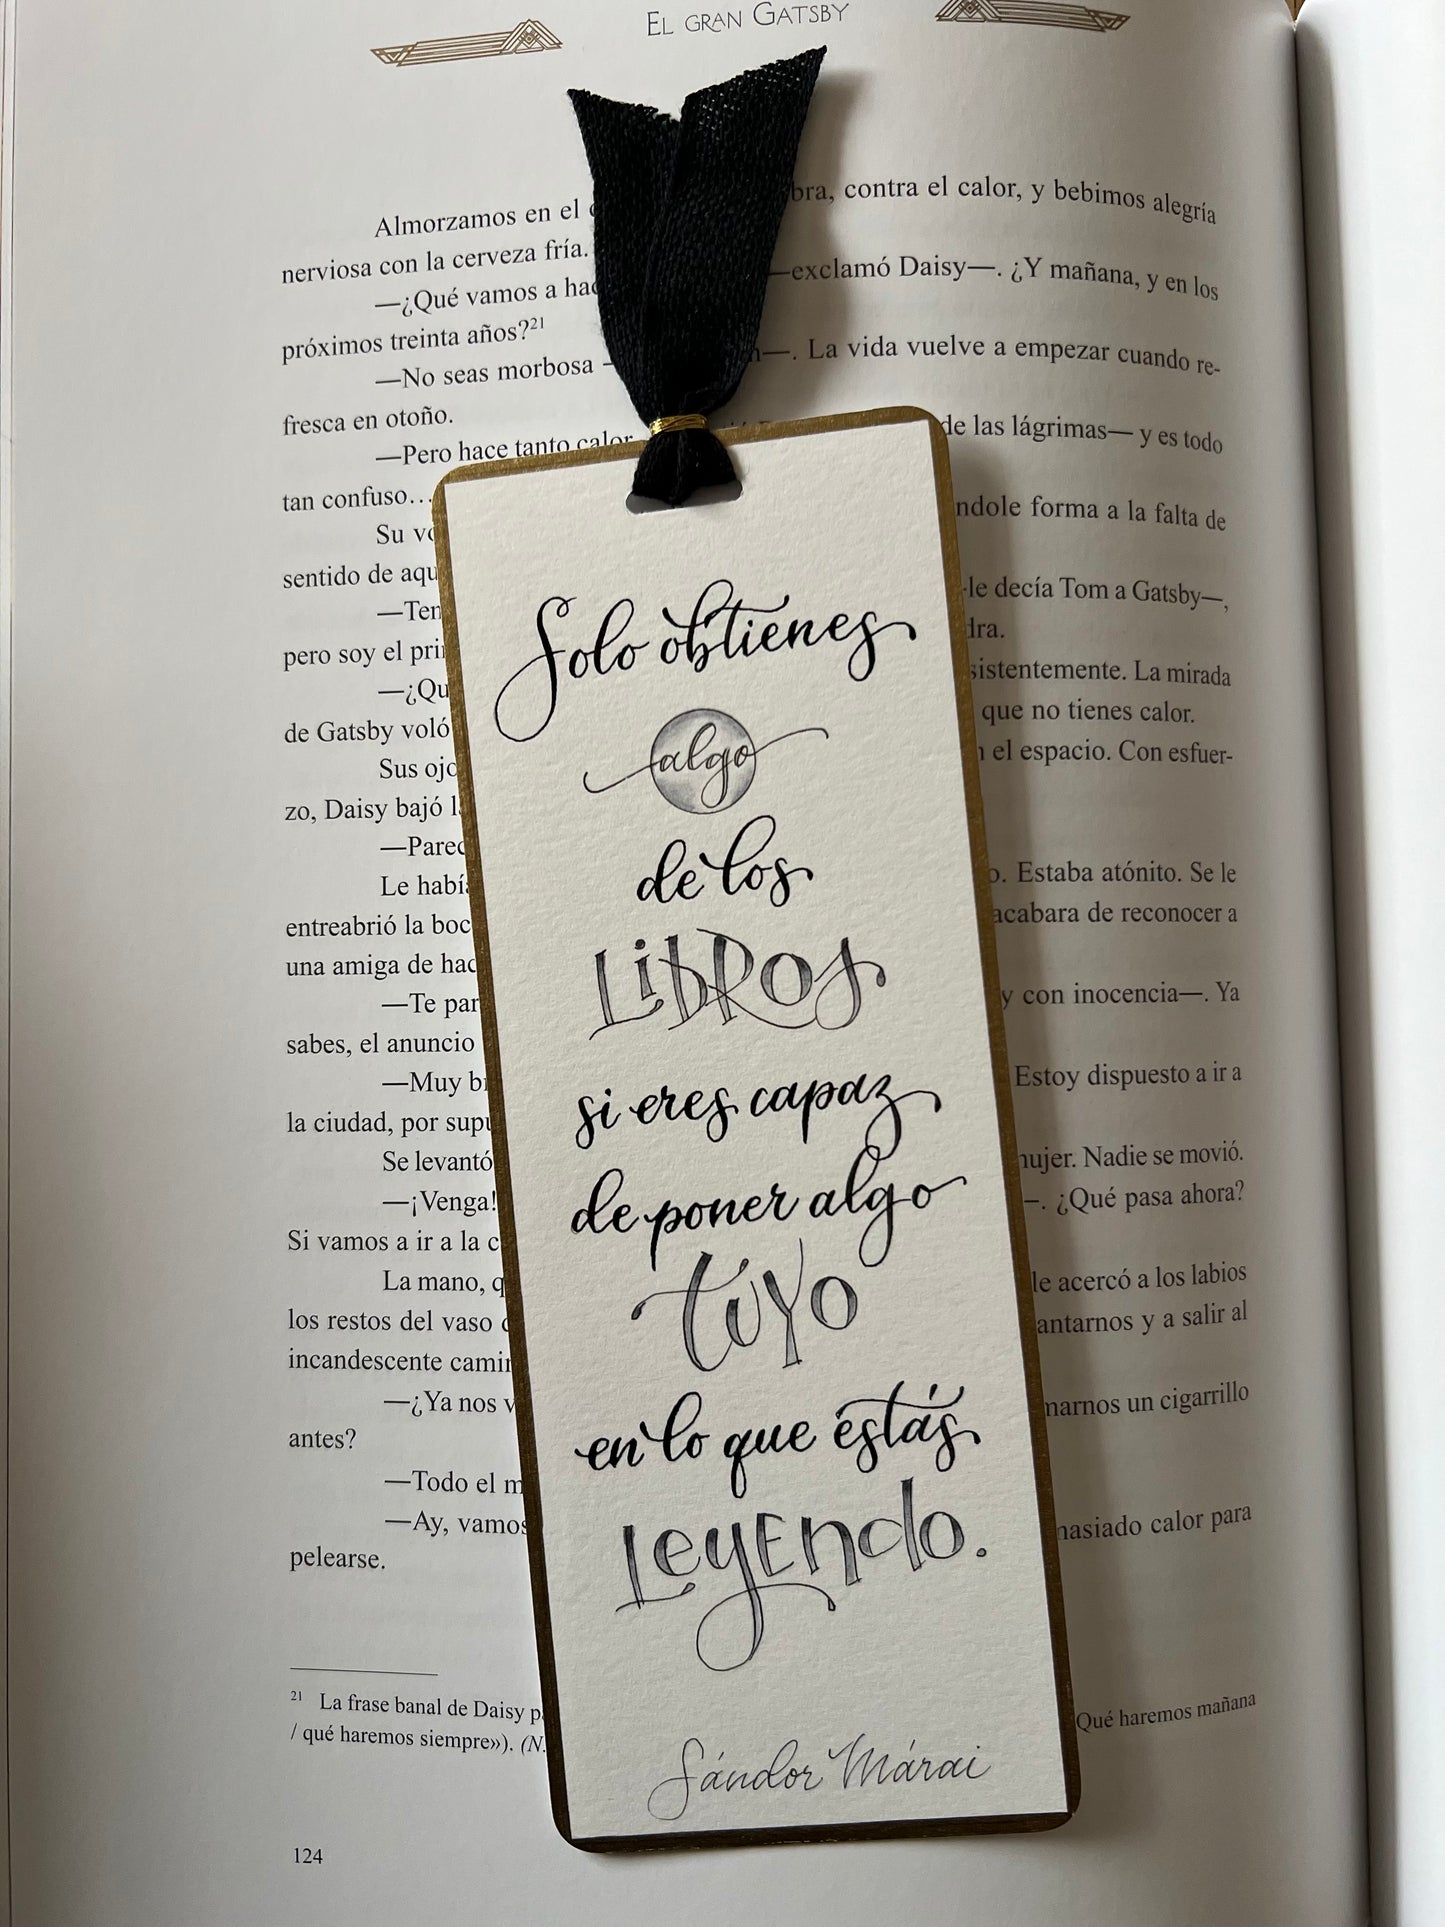 EL GRAN GATSBY
Almorzamos en el bra, contra el calor, y bebimos alegría
nerviosa con la cerveza fría.
—¿Qué vamos a —exclamó Daisy—. ¿Y mañana, y en los
próximos treinta años?21
—No seas morbosa —. La vida vuelve a empezar cuando re-
fresca en otoño.
—Pero hace tanto calor de las lágrimas— y es todo
tan confuso…
Su ndole forma a la falta de
sentido de
le decía Tom a Gatsby—,
pero soy el dra.
—¿ sistentemente. La mirada
de Gatsby voló que no tienes calor.
Sus el espacio. Con esfuer-
zo, Daisy bajó
Le o. Estaba atónito. Se le
entreabrió la acabara de reconocer a
una amiga de
—Te y con inocencia—. Ya
sabes, el anuncio
—Muy Estoy dispuesto a ir a
la ciudad, por
Se levantó mujer. Nadie se movió.
—¡Venga! —. ¿Qué pasa ahora?
Si vamos a ir a la
La mano, le acercó a los labios
los restos del vaso antarnos y a salir al
incandescente
—¿Ya nos marnos un cigarrillo
antes?
—Todo el
—Ay, vamos masiado calor para
pelearse.
21 La frase banal de Daisy Qué haremos mañana
/ qué haremos siempre»). (N.
124
Solo obtienes
algo
de los
LiBROS
si eres capaz
de poner algo
tuyo
en lo que estás
Leyendo.
Sándor Márai